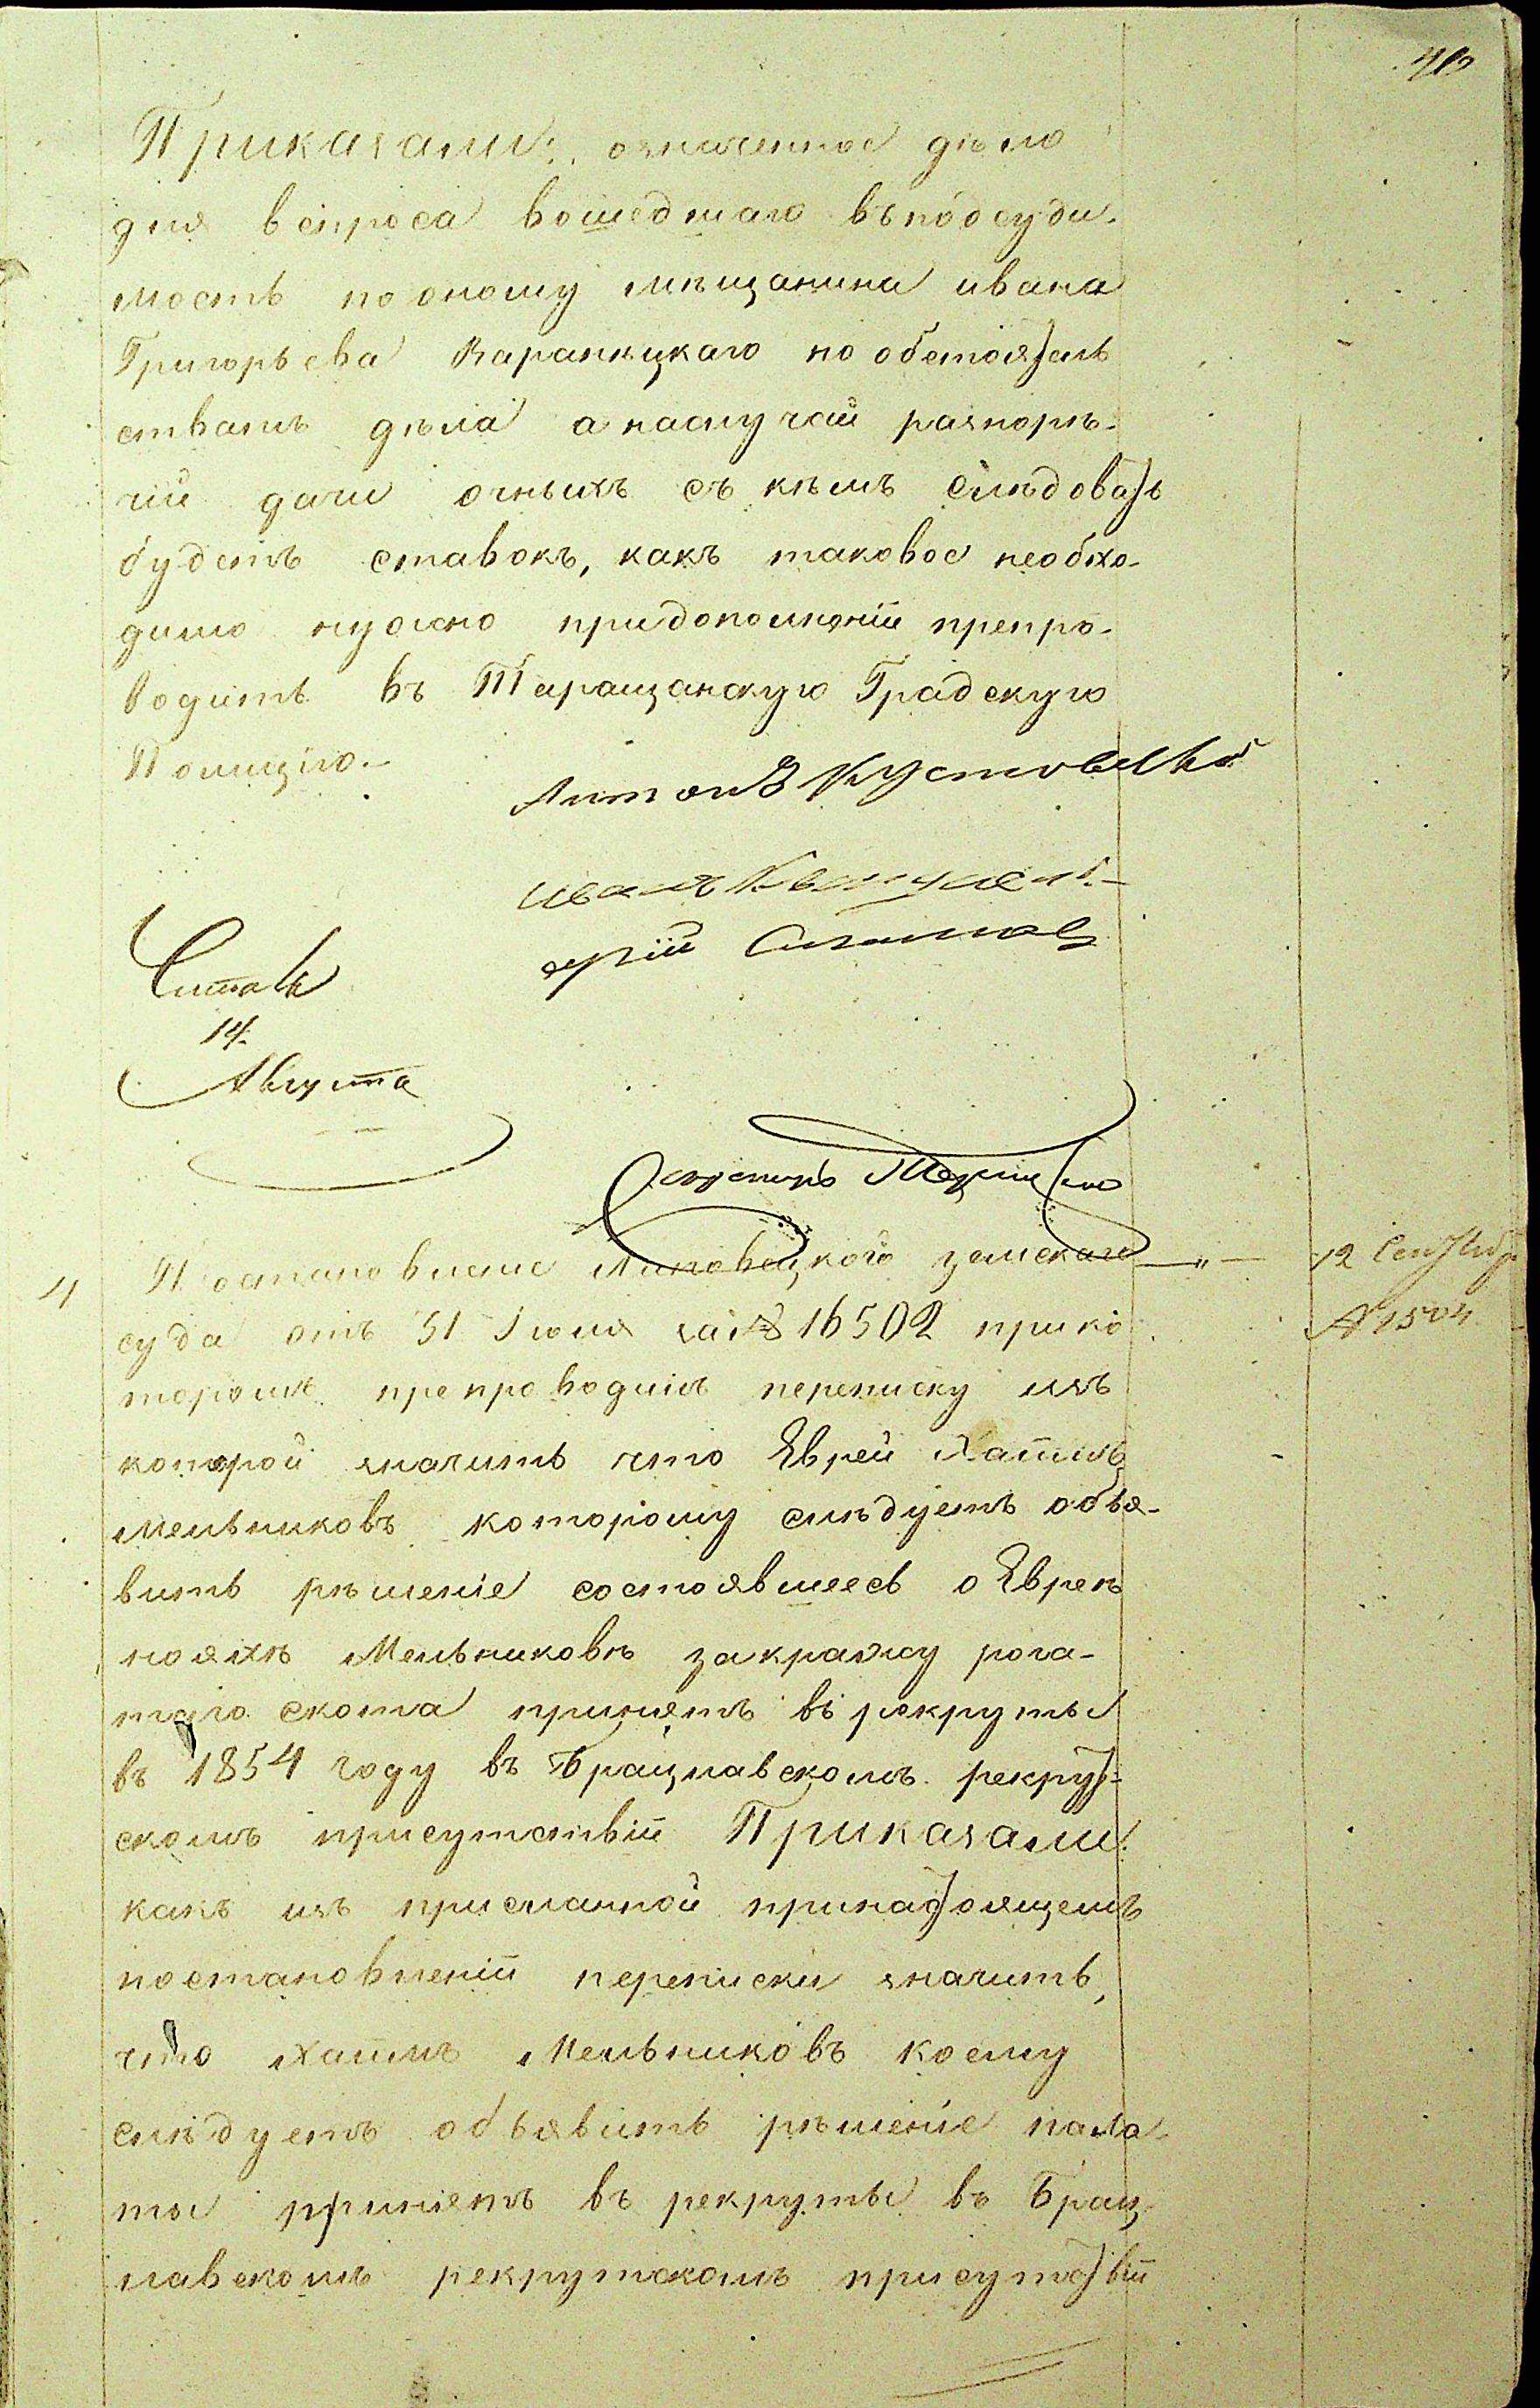 Приказали: означенное дѣло
для вспроса вошедшаго въ подсуди-
мость по оному мѣщанина ивана
Григорьева Караницкаго по обстоятель
ствамъ дѣла а наслучай разнорѣ-
чій дачи очныхъ съ кѣмъ слѣдовать
будетъ ставокъ, какъ таковое необхо-
димо нужно придополненіи препро-
водить въ Таращанскую Градскую
Полицію.-
Антонъ
Иванъ
Читалъ
14.
Августа
Постановленіе Липовецкого земскаго
12 Сентября
4
суда отъ 31 Іюля за № 16502 прико
№ 1504
торомъ препроводилъ переписку изъ
которой значитъ что Еврей Хаимъ
Мельниковъ которому слѣдуетъ объя-
вить рѣшеніе состоявшееся о Евреѣ
Мельниковѣ закражу рога-
таго скота принятъ въ рекруты
въ 1854 году въ Брацлавскомъ рекрут-
скомъ присутствіи Приказали:
какъ изъ присланной принастоящемъ
постановленіи переписки значитъ,
что Хаимъ Мельниковъ коему
слѣдуетъ объявить рѣшеніе пала-
ты принятъ въ рекруты въ Брац-
лавскомъ рекрутскомъ присутствіи